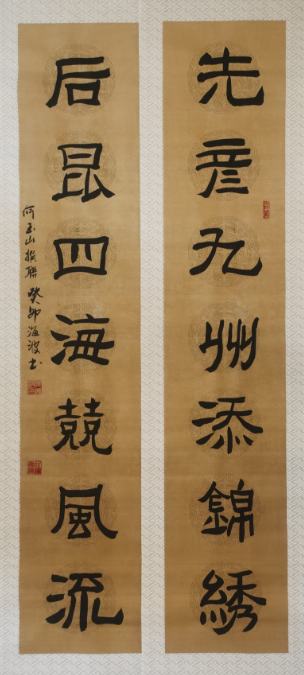 先彦九州添錦綉
后昆四海競風流
何玉山撰聯 癸卯海波书